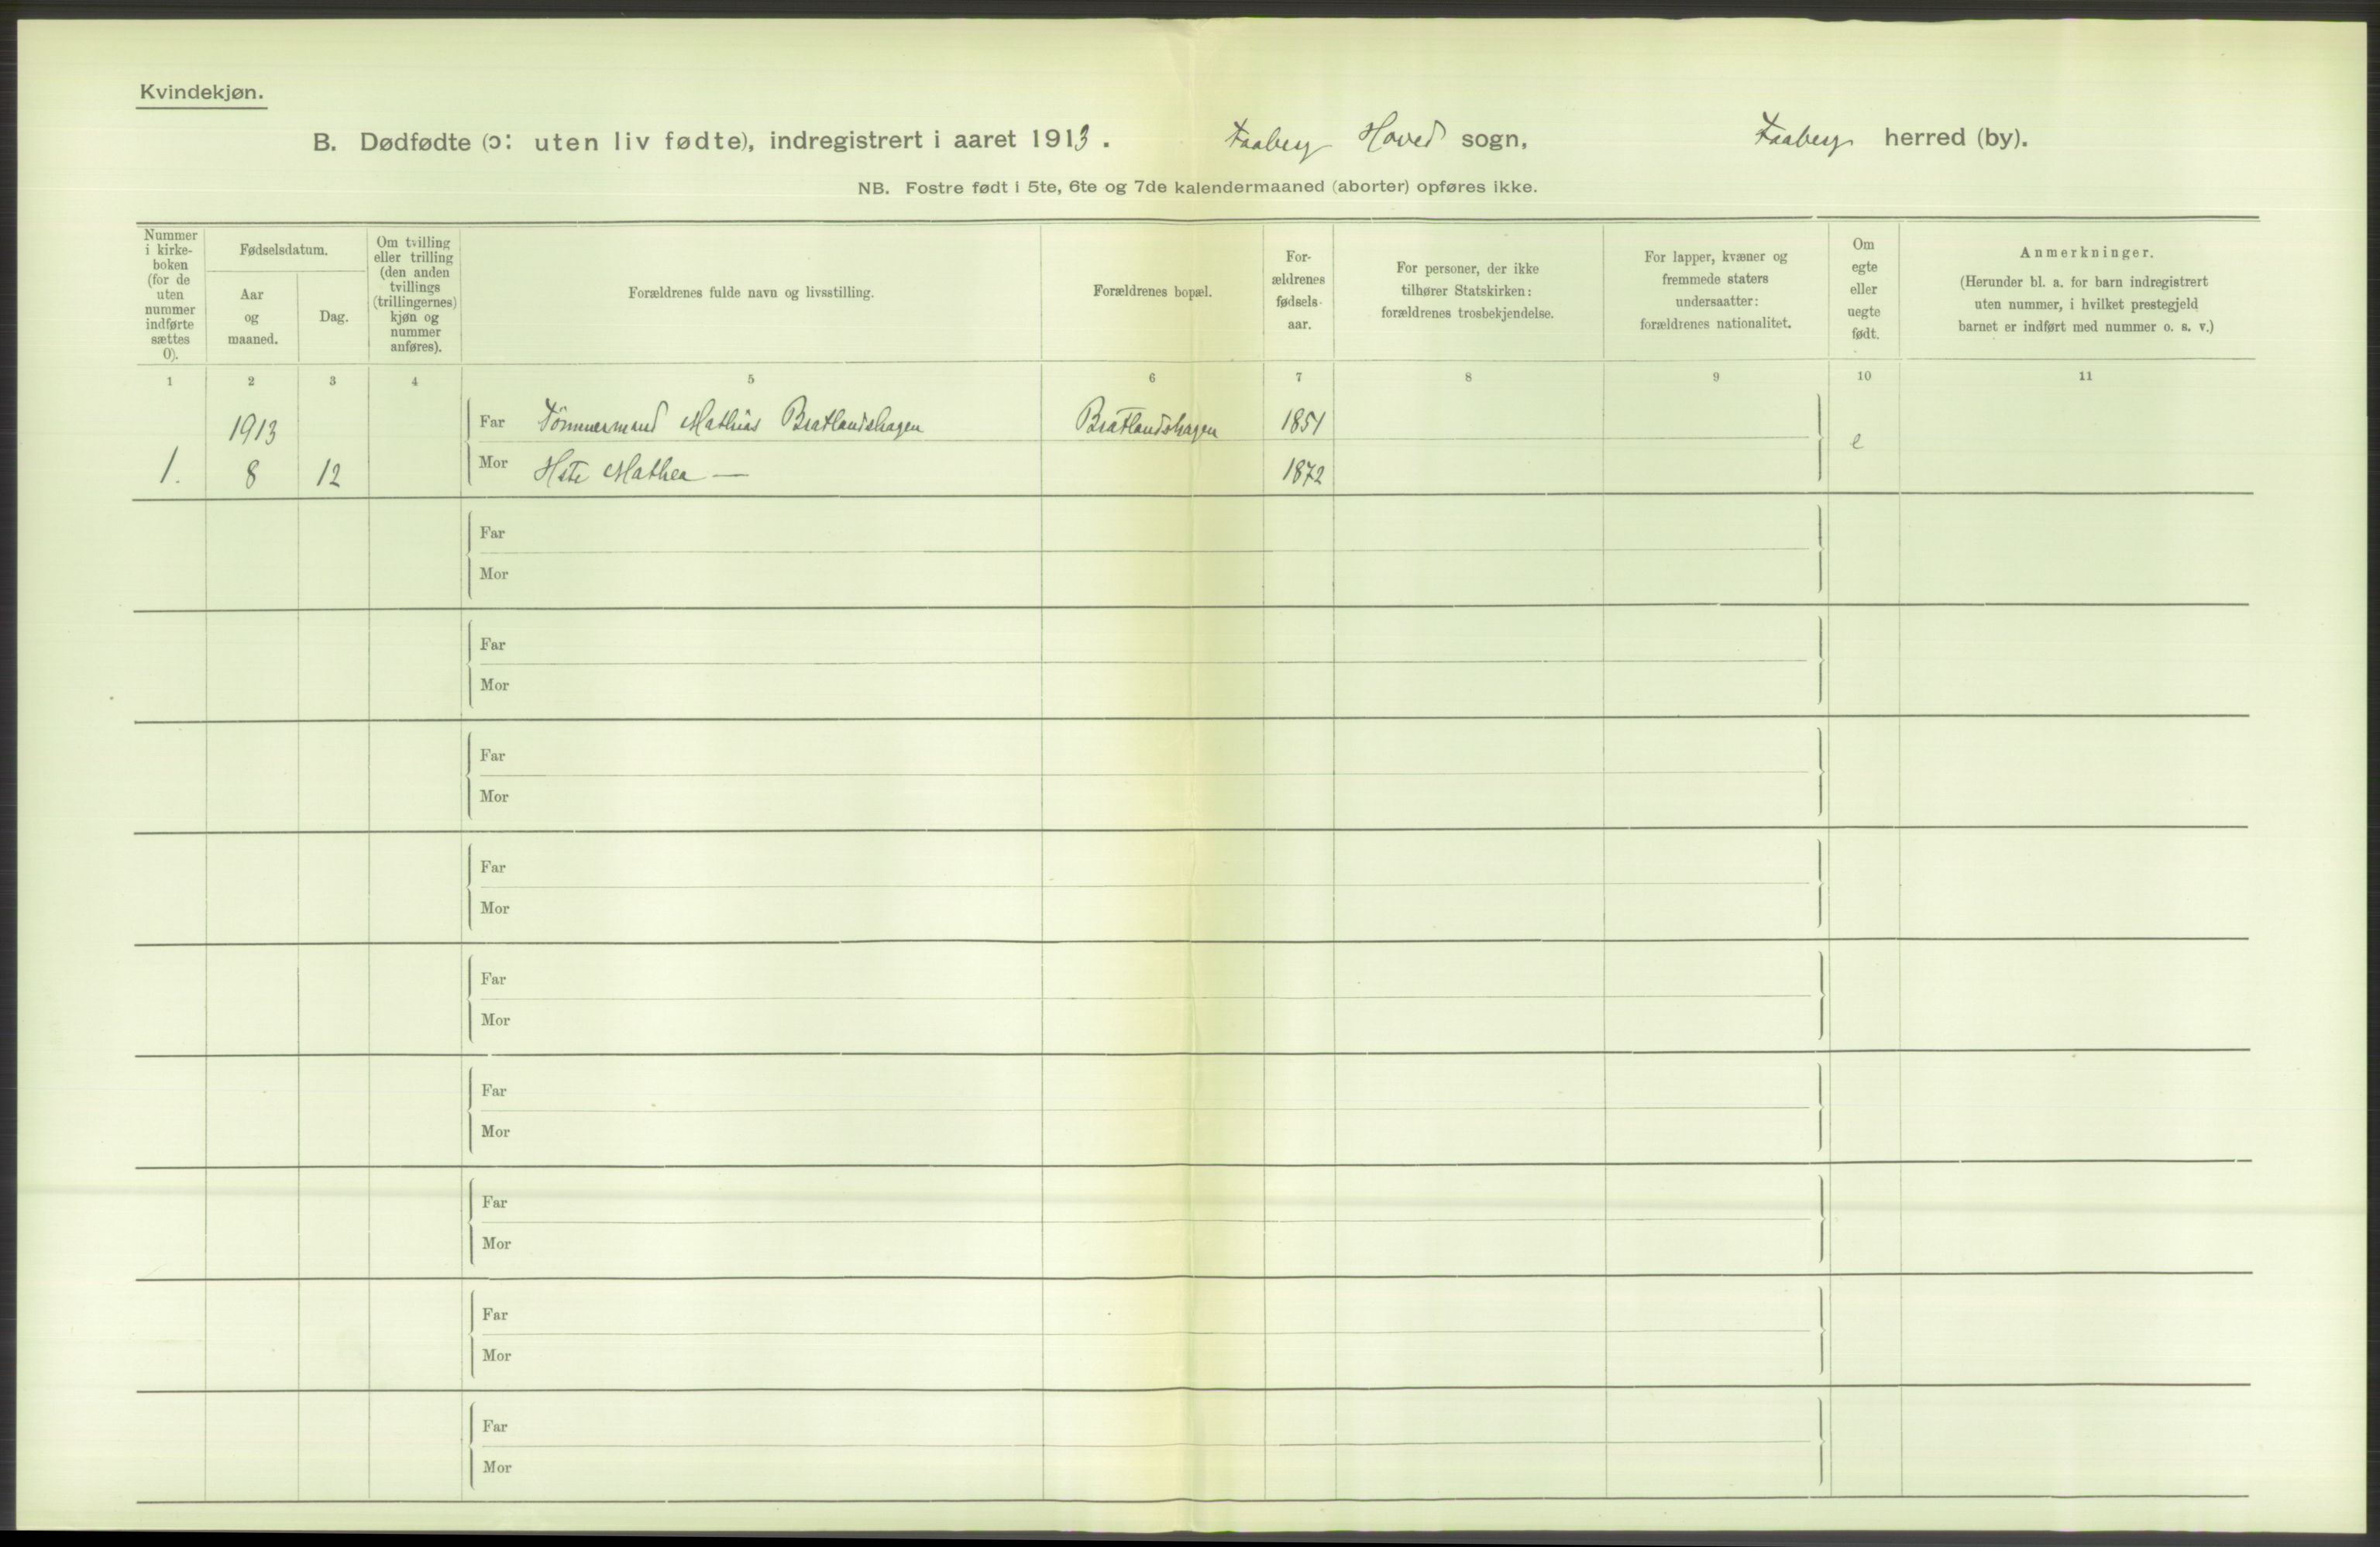 Kvindekjøn.
B. Dødfødte (ɔ: uten liv fødte), indregistrert i aaret 1913. Faaberg Hoved sogn, Faaberg herred (by).
NB. Fostre født i 5te, 6te og 7de kalendermaaned (aborter) opføres ikke.
Nummer i kirke-boken (for de uten nummer indførte sættes 0).
Fødselsdatum.
Aar og maaned.
Dag.
Om tvilling eller trilling (den anden tvillings (trillingernes) kjøn og nummer anføres).
Forældrenes fulde navn og livsstilling.
Forældrenes bopæl.
For-ældrenes fødsels-aar.
For personer, der ikke tilhører Statskirken: forældrenes trosbekjendelse.
For lapper, kvæner og fremmede staters undersaatter: forældrenes nationalitet.
Om egte eller uegte født.
Anmerkninger.
(Herunder bl. a. for barn indregistrert uten nummer, i hvilket prestegjeld barnet er indført med nummer o. s. v.)
1 2 3 4 5 6 7 8 9 10 11
1913 Far Tömmermand Mathias Bratlandshagen Bratlandshagen 1851 e
1. 8 12 Mor Hste Mathea — 1872
Far
Mor
Far
Mor
Far
Mor
Far
Mor
Far
Mor
Far
Mor
Far
Mor
Far
Mor
Far
Mor